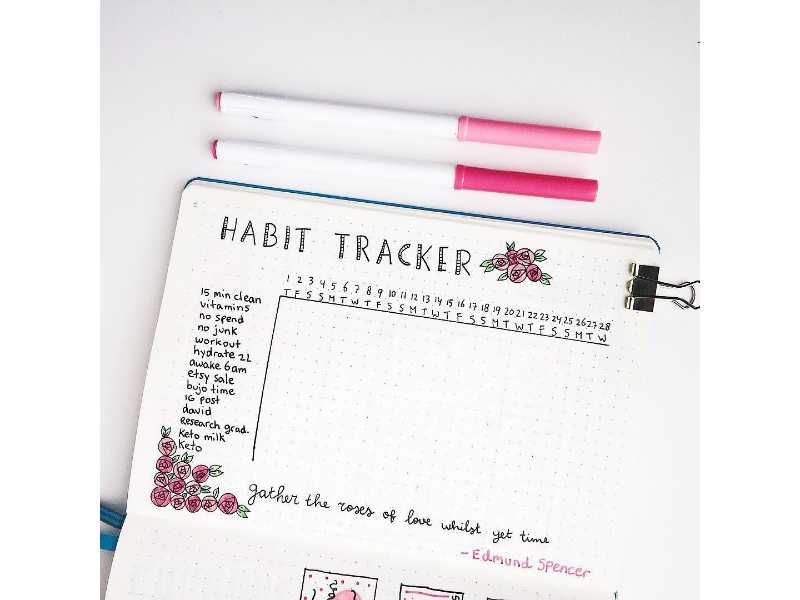 HABIT TRACKER
1 2 3 4 5 6 7 8 9 10 11 12 13 14 15 16 17 18 19 20 21 22 23 24 25 26 27 28
T F S S M T W T F S S M T W T F S S M T W T F S S M T W
15 min clean
vitamins
no spend
no junk
workout
hydrate 2L
awake 6am
etsy sale
bujo time
IG post
david
Research grad.
Keto milk
Keto
gather the roses of love whilst yet time
- Edmund Spencer